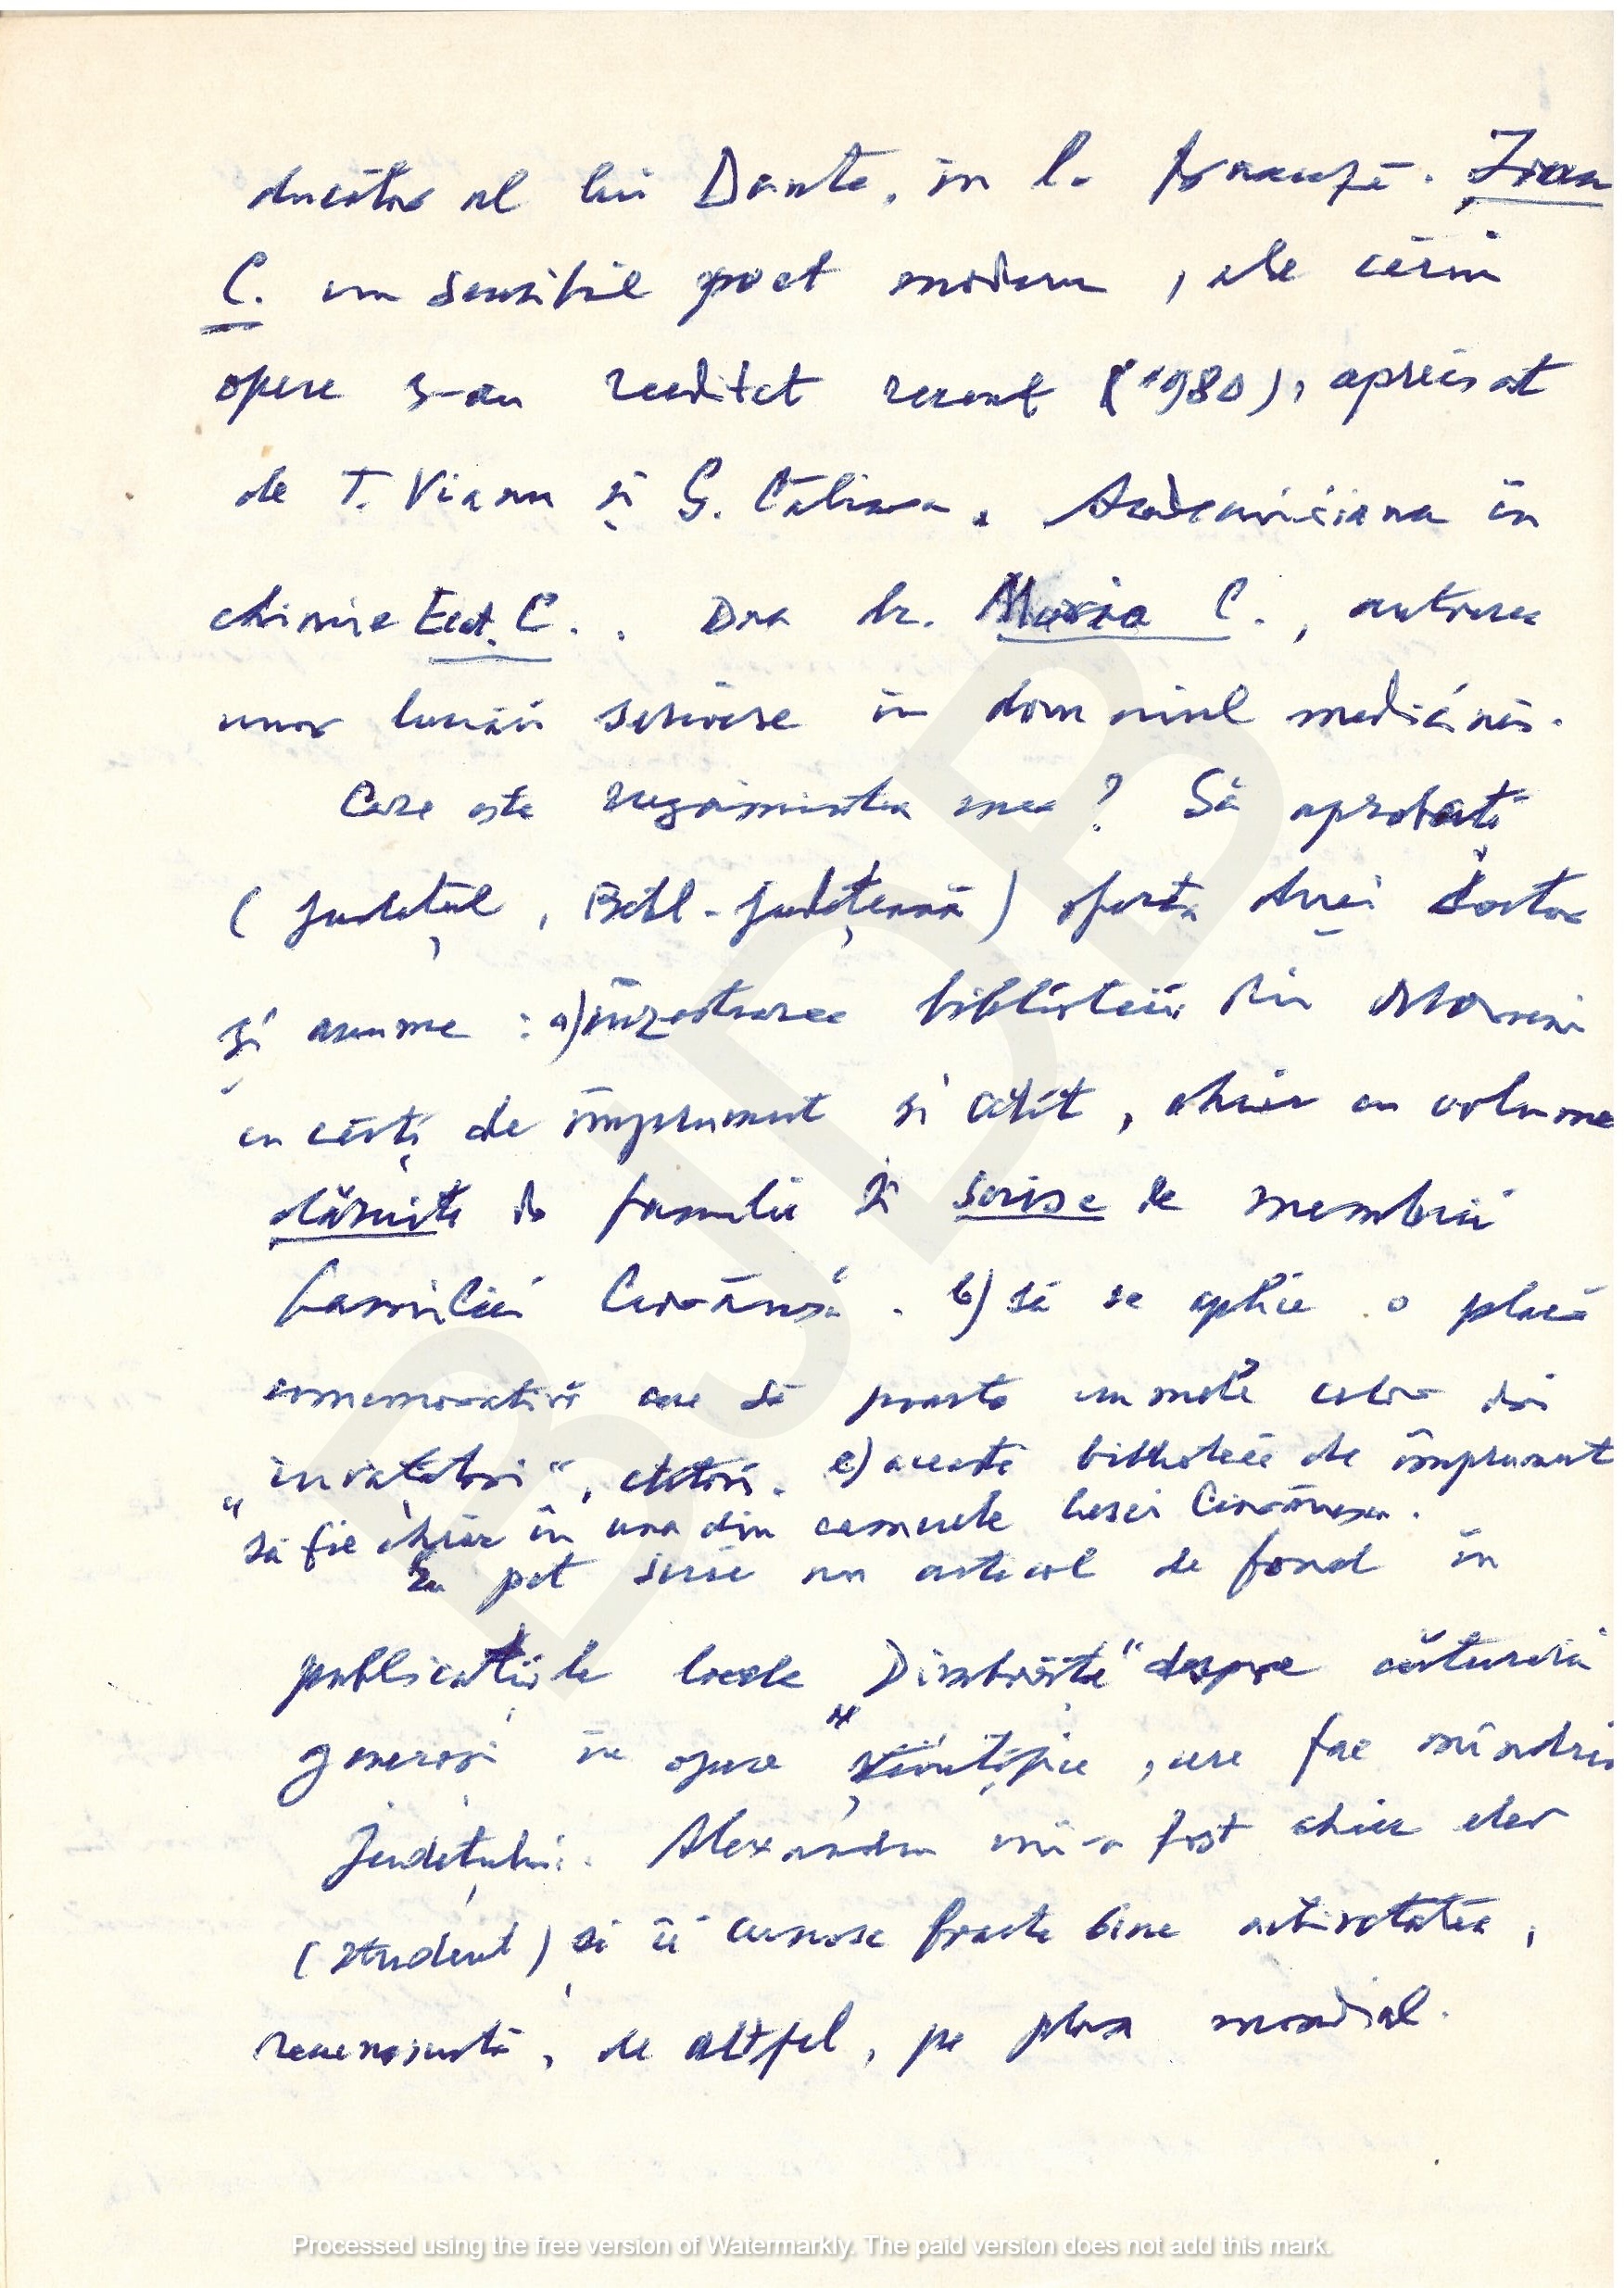 ducător al lui Dante, în l. franceză. Zoran
C. un sensibil poet modern, ale cărui
opere s-au reeditat recent (1980), apreciat
de T. Vianu și G. Călinescu. Academiciana în
chimie Ecat. C.. Dna dr. Maria C., autoarea
unor lucrări serioase în domeniul medicinei.
Care este rugămintea mea? Să aprobați
(Județul, Bibl. Județeană) oferta dnei doctor
și anume: a) înzestrarea bibliotecii din
cu cărți de împrumut și citit, chiar cu volume
dăruite de familie și scrise de membrii
familiei Ciorănescu. b) să se aplice o placă
comemorativă care să poarte numele celor doi
„învățători", ctitori. c) această bibliotecă de împrumut
să fie chiar în una din camerele casei Ciorănescu.
Eu pot scrie un articol de fond în
publicațiile locale „Dîmbovița" despre
generoși în opere științifice, care fac mândria
Județului. Alexandru mi-a fost chiar elev
(student) și îi cunosc foarte bine activitatea,
recunoscută, de altfel, pe plan mondial.
Processed using the free version of Watermarkly. The paid version does not add this mark.
BJDB